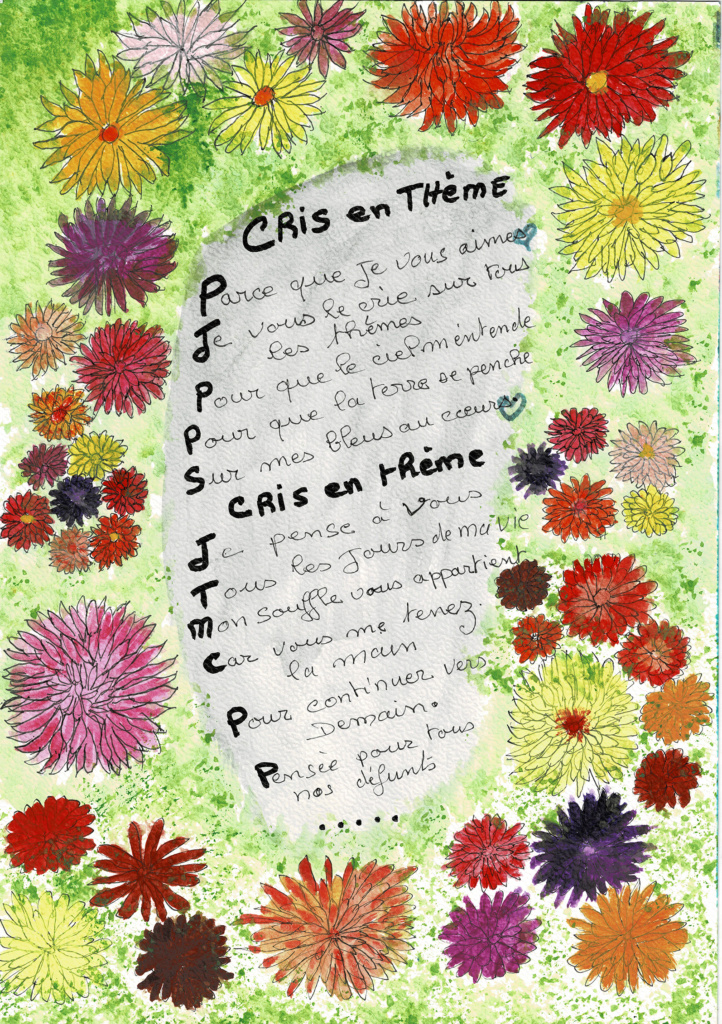 CRIS en THème
Parce que Je vous aimes
Je vous le crie sur tous
les thèmes
Pour que le ciel m'entende
Pour que la terre se penche
Sur mes bleus au cœurs.
CRIS en tRème
Je pense à Vous
Tous les Jours de ma vie
Mon souffle vous appartient
Car vous me tenez.
la main
Pour continuer vers
Demain.
Pensée pour tous
nos défunts
.....